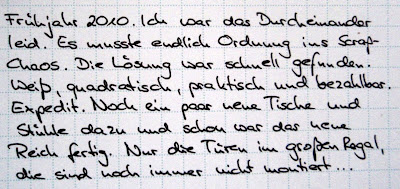 Frühjahr 2010. Ich war das Durcheinander
leid. Es musste endlich Ordnung ins Scrap-
Chaos. Die Lösung war schnell gefunden.
Weiß, quadratisch, praktisch und bezahlbar.
Expedit. Noch ein paar neue Tische und
Stühle dazu und schon war das neue
Reich fertig. Nur die Türen im großen Regal,
die sind noch immer nicht montiert...